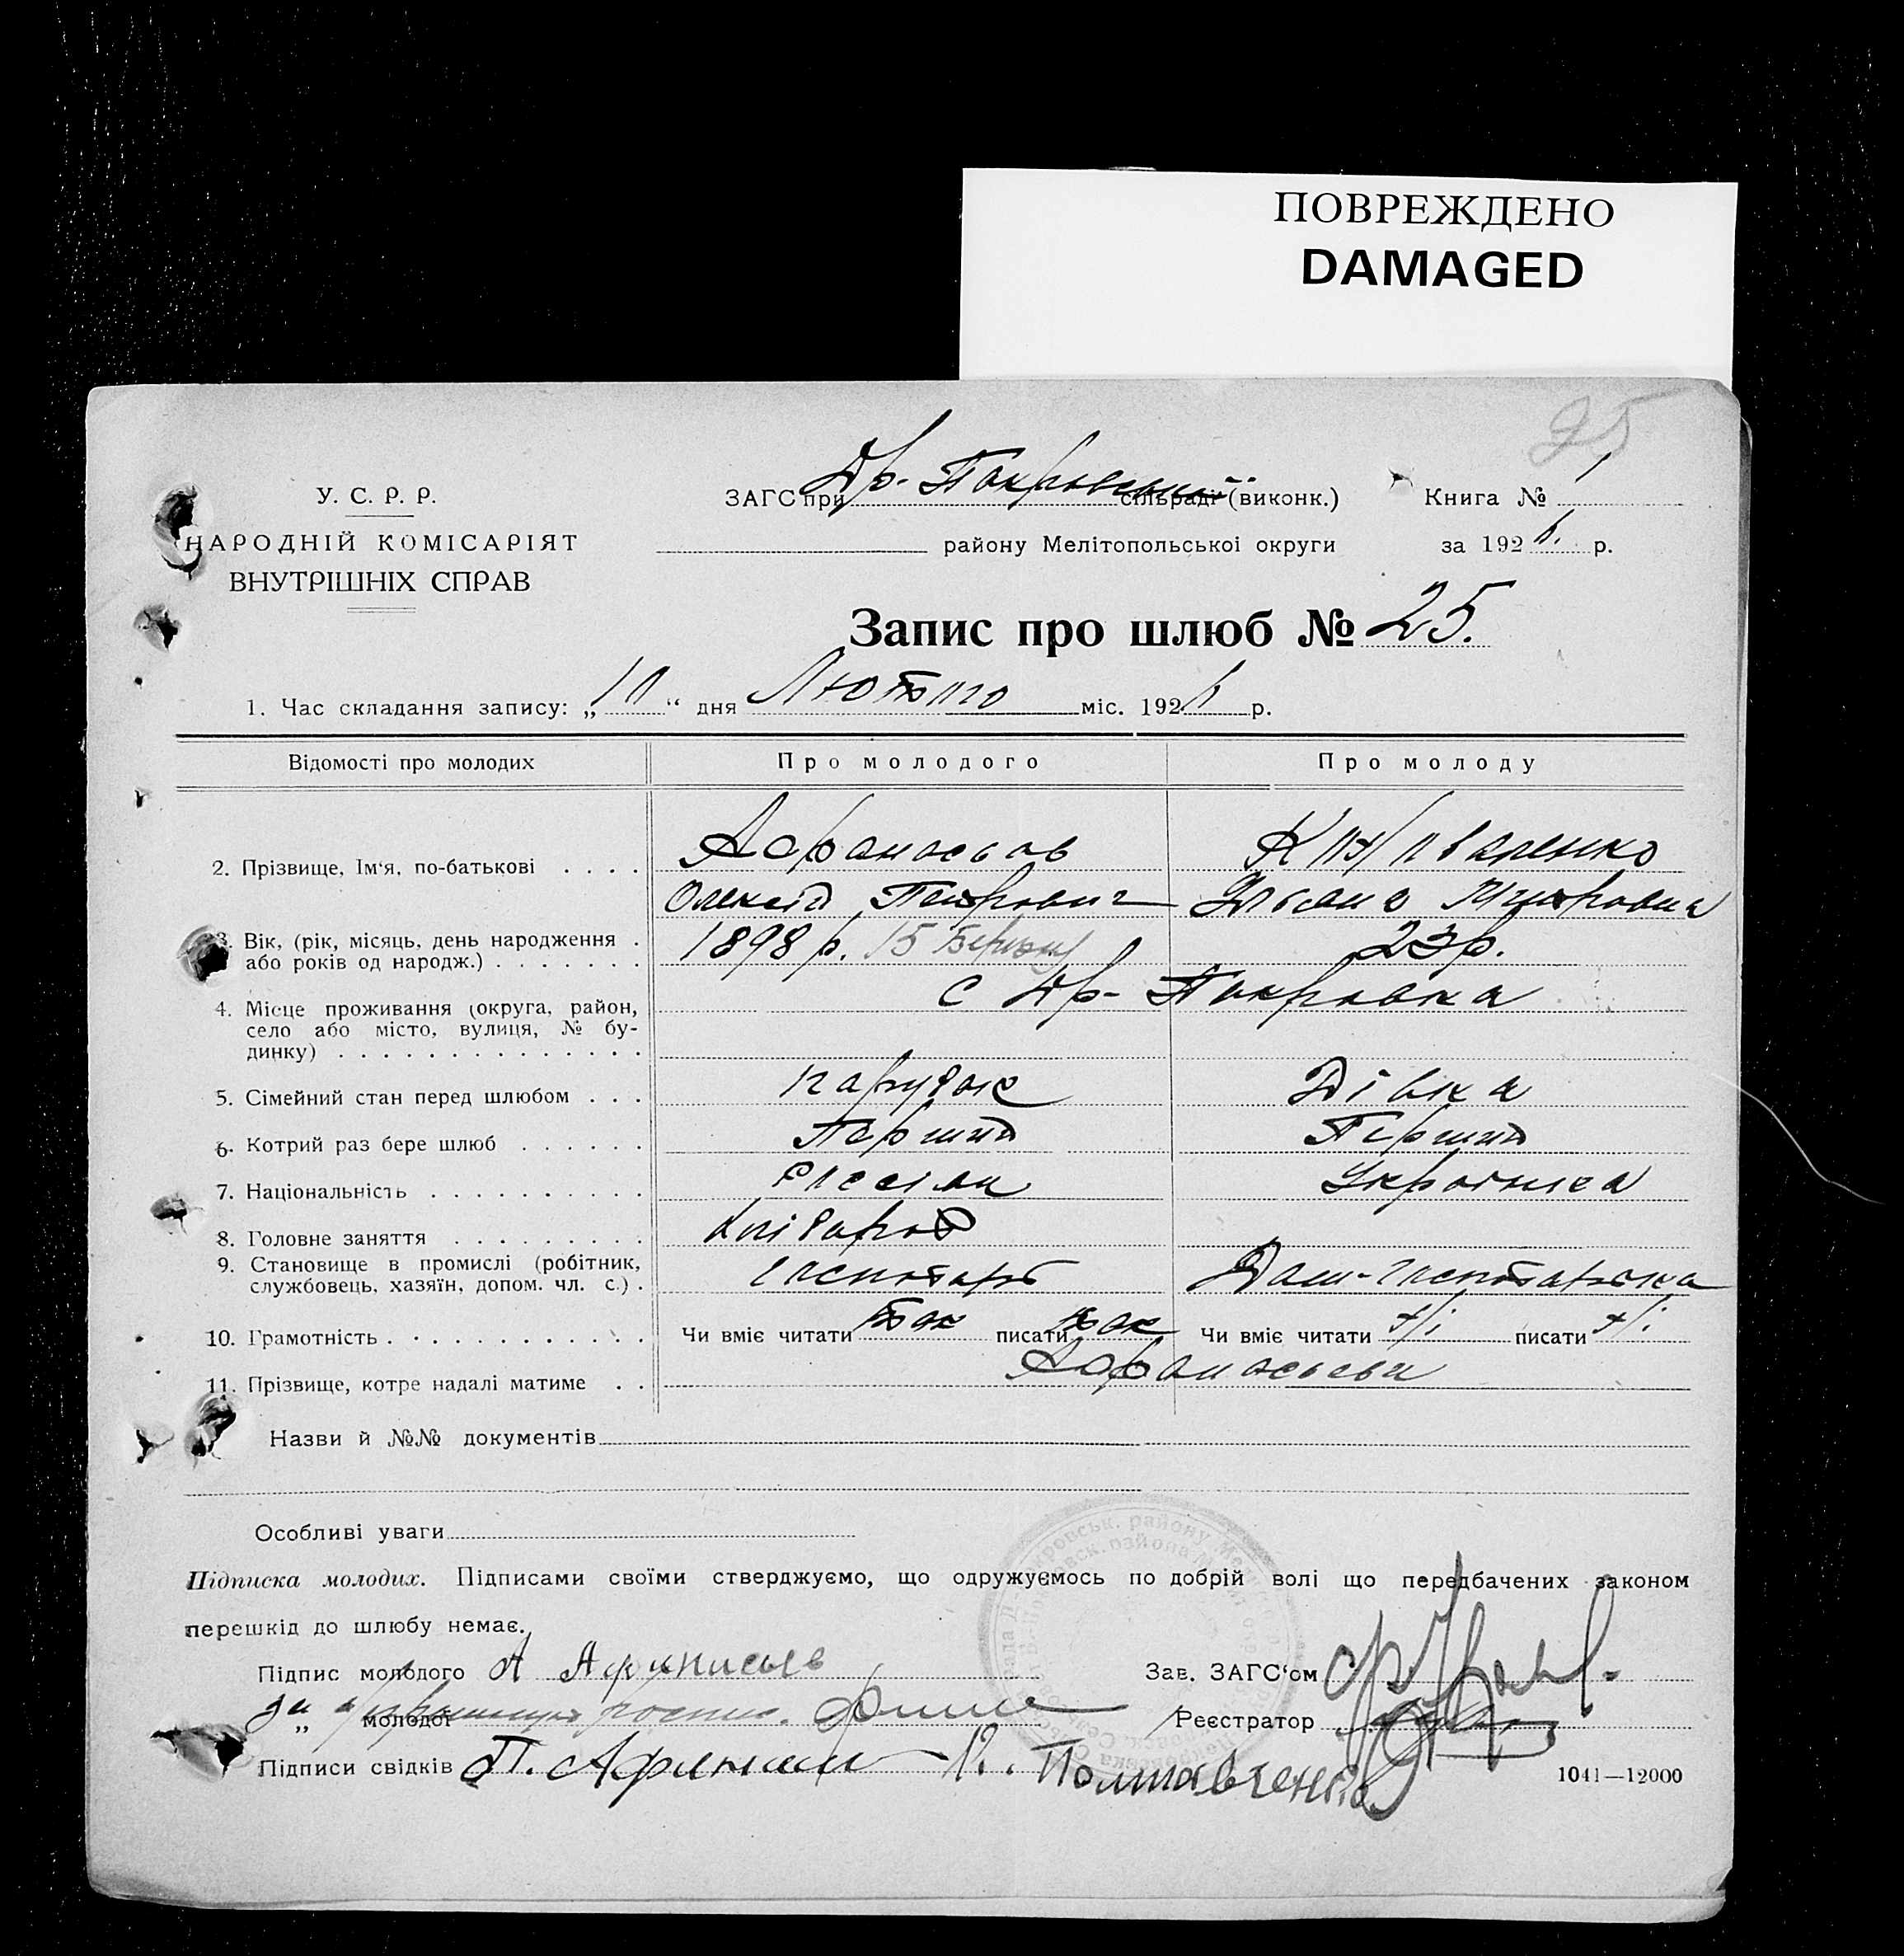 ПОВРЕЖДЕНО
DAMAGED
25
У. С. Р. Р.
НАРОДНІЙ КОМІСАРІЯТ
ВНУТРІШНІХ СПРАВ
ЗАГС при Др-Покровській сільраді (виконк.)
Книга № 1
району Мелітопольської округи
за 192 р.
Запис про шлюб № 25.
1. Час складання запису: „ “ дня Лютого міс. 192 р.
Відомості про молодих Про молодого Про молоду
2. Прізвище, Ім'я, по-батькові . . . . Афанасьєв
Олексій Петрович
3. Вік, (рік, місяць, день народження . або років од народж.) . . . . . . . 1898 р. 15 Березня 23 р.
4. Місце проживання (округа, район, село або місто, вулиця, № будинку) . . . . . . . . . . . . . . с Др-Покровка
5. Сімейний стан перед шлюбом . . . парубок Дівка
6. Котрий раз бере шлюб . . . . . . Перший Перший
7. Національність . . . . . . . . . . Українка
8. Головне заняття . . . . . . . . . Хлібороб
9. Становище в промислі (робітник, службовець, хазяїн, допом. чл. с.) . господарь Дом-господарька
10. Грамотність . . . . . . . . . . . . Чи вміє читати так писати так Чи вміє читати ні писати ні
11. Прізвище, котре надалі матиме . . Афанасьєви
Назви й №№ документів
Особливі уваги
Підписка молодих. Підписами своїми стверджуємо, що одружуємось по добрій волі що передбачених законом
перешкід до шлюбу немає.
Підпис молодого А Афанасьев
Зав. ЗАГС'ом
„ молодої
Реєстратор
Підписи свідків П. Полтавченко
1041—12000